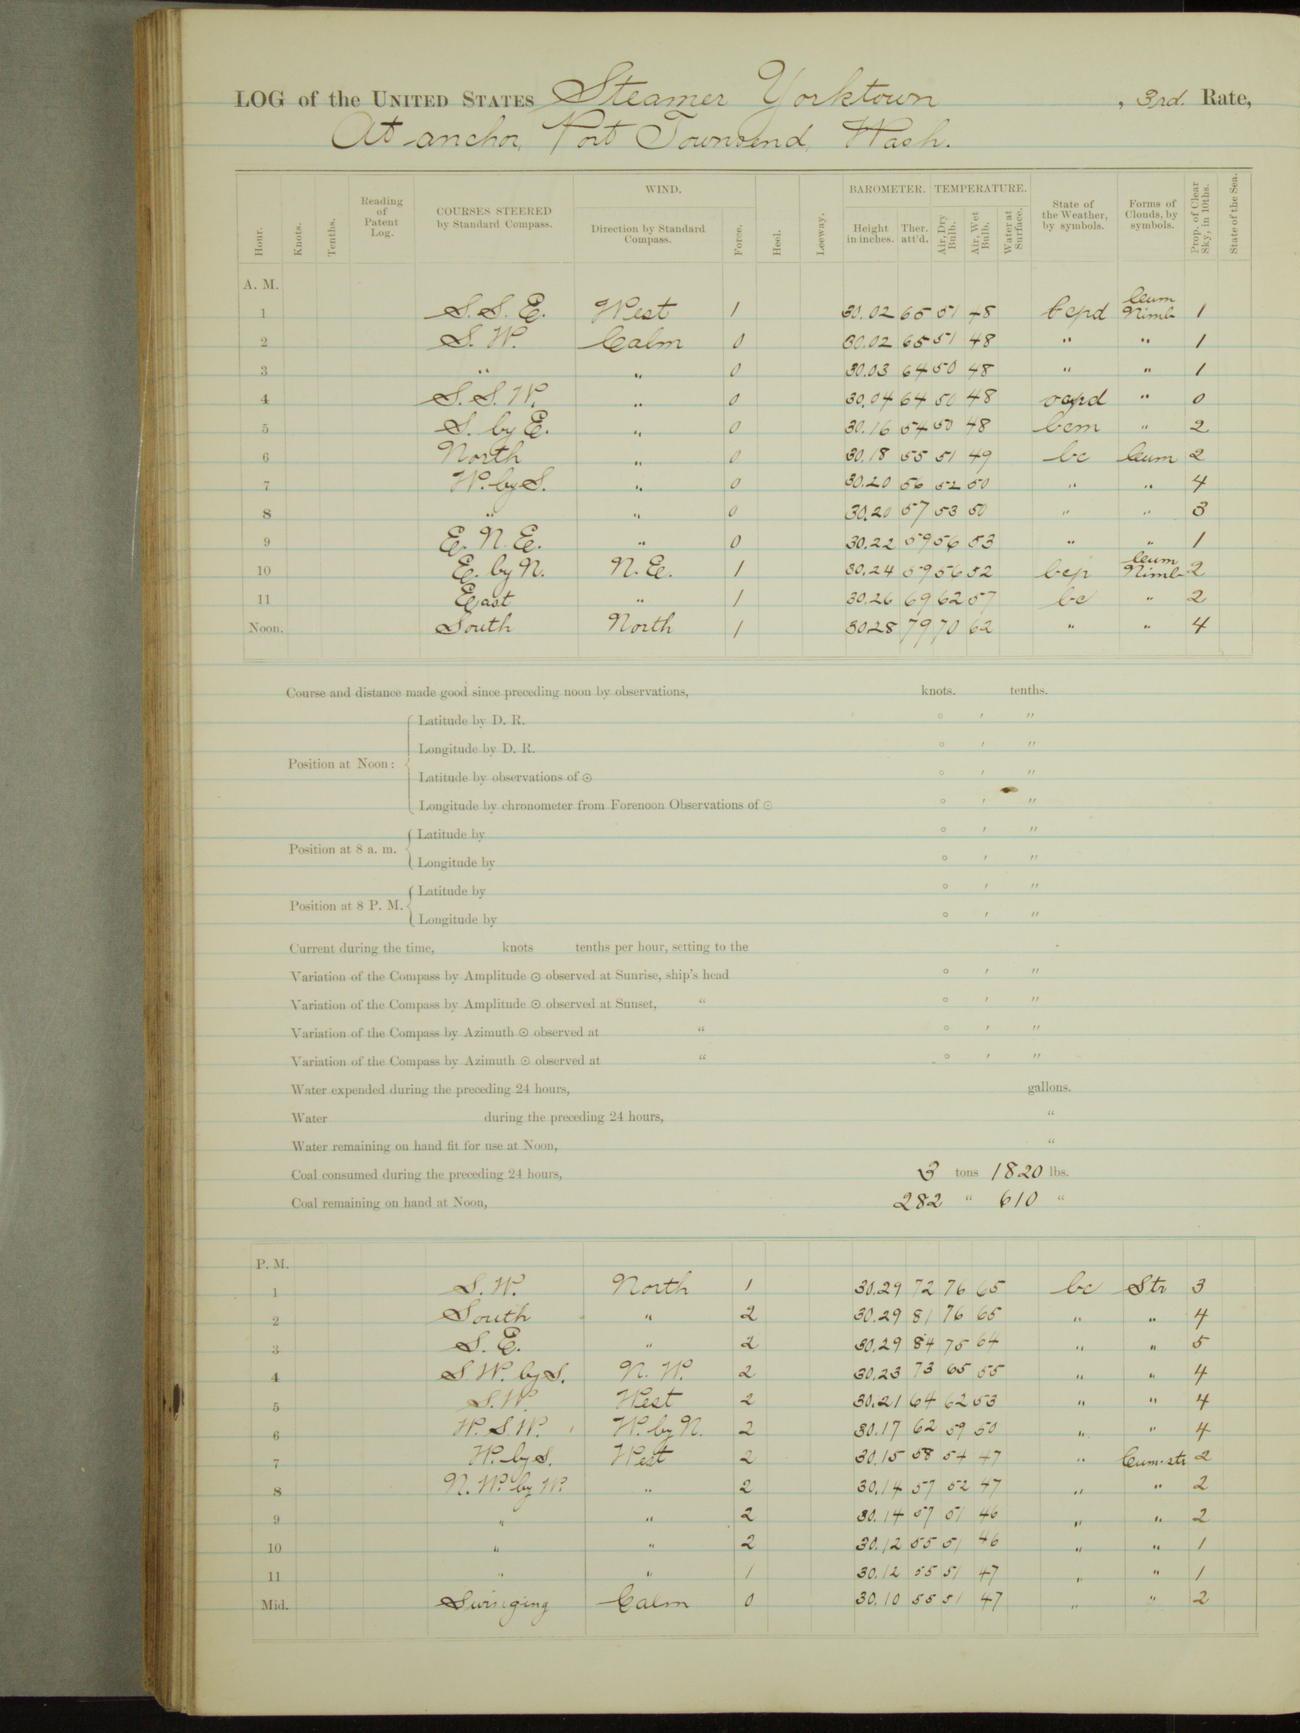 LOG of the UNITED STATES Steamer Yorktown, 3rd. Rate,
At anchor, Port Townsend, Wash.
Hour. Knots. Tenths. Reading of Patent Log. COURSES STEERED by Standard Compass. WIND. Direction by Standard Compass. Force. Heel. Leeway. BAROMETER. Height in inches. Ther. att'd. TEMPERATURE. Air, Dry Bulb. Air, Wet Bulb. Water at Surface. State of the Weather, by symbols. Forms of Clouds, by symbols. Prop. of Clear Sky, in 10ths. State of the Sea.
A. M.
1 S. S. E. West 1 30.02 65 51 48 bcpd Cum Nimb 1
2 S. W. Calm 0 30.02 65 51 48 " " 1
3 " " 0 30.03 64 50 48 " " 1
4 S. S. W. " 0 30.04 64 50 48 ocpd " 0
5 S. by E. " 0 30.16 54 50 48 bcm " 2
6 North " 0 30.18 55 51 49 bc Cum 2
7 W. by S. " 0 30.20 56 52 50 " " 4
8 " " 0 30.20 57 53 50 " " 3
9 E. N. E. " 0 30.22 59 56 53 " " 1
10 E. by N. N. E. 1 30.24 59 56 52 bcp Cum Nimb 2
11 East " 1 30.26 69 62 57 bc " 2
Noon. South North 1 30.28 79 70 62 " " 4
Course and distance made good since preceding noon by observations, knots. tenths.
Position at Noon: Latitude by D. R. ° ' "
Longitude by D. R. ° ' "
Latitude by observations of ☉ ° ' "
Longitude by chronometer from Forenoon Observations of ☉ ° ' "
Position at 8 a. m. Latitude by ° ' "
Longitude by ° ' "
Position at 8 P. M. Latitude by ° ' "
Longitude by ° ' "
Current during the time, knots tenths per hour, setting to the
Variation of the Compass by Amplitude ☉ observed at Sunrise, ship's head ° ' "
Variation of the Compass by Amplitude ☉ observed at Sunset, " ° ' "
Variation of the Compass by Azimuth ☉ observed at " ° ' "
Variation of the Compass by Azimuth ☉ observed at " ° ' "
Water expended during the preceding 24 hours, gallons.
Water during the preceding 24 hours, "
Water remaining on hand fit for use at Noon, "
Coal consumed during the preceding 24 hours, 3 tons 1820 lbs.
Coal remaining on hand at Noon, 282 " 610 "
P. M.
1 S. W. North 1 30.29 72 76 65 bc Str 3
2 South " 2 30.29 81 76 65 " " 4
3 S. E. " 2 30.29 84 75 64 " " 5
4 S. W. by S. N. W. 2 30.23 73 65 55 " " 4
5 S. W. West 2 30.21 64 62 53 " " 4
6 W. S. W. W. by N. 2 30.17 62 59 50 " " 4
7 W. by S. West 2 30.15 58 54 47 " Cum-str 2
8 N. W. by W. " 2 30.14 57 52 47 " " 2
9 " " 2 30.14 57 51 46 " " 2
10 " " 2 30.12 55 51 46 " " 1
11 " " 1 30.12 55 51 47 " " 1
Mid. Swinging Calm 0 30.10 55 51 47 " " 2